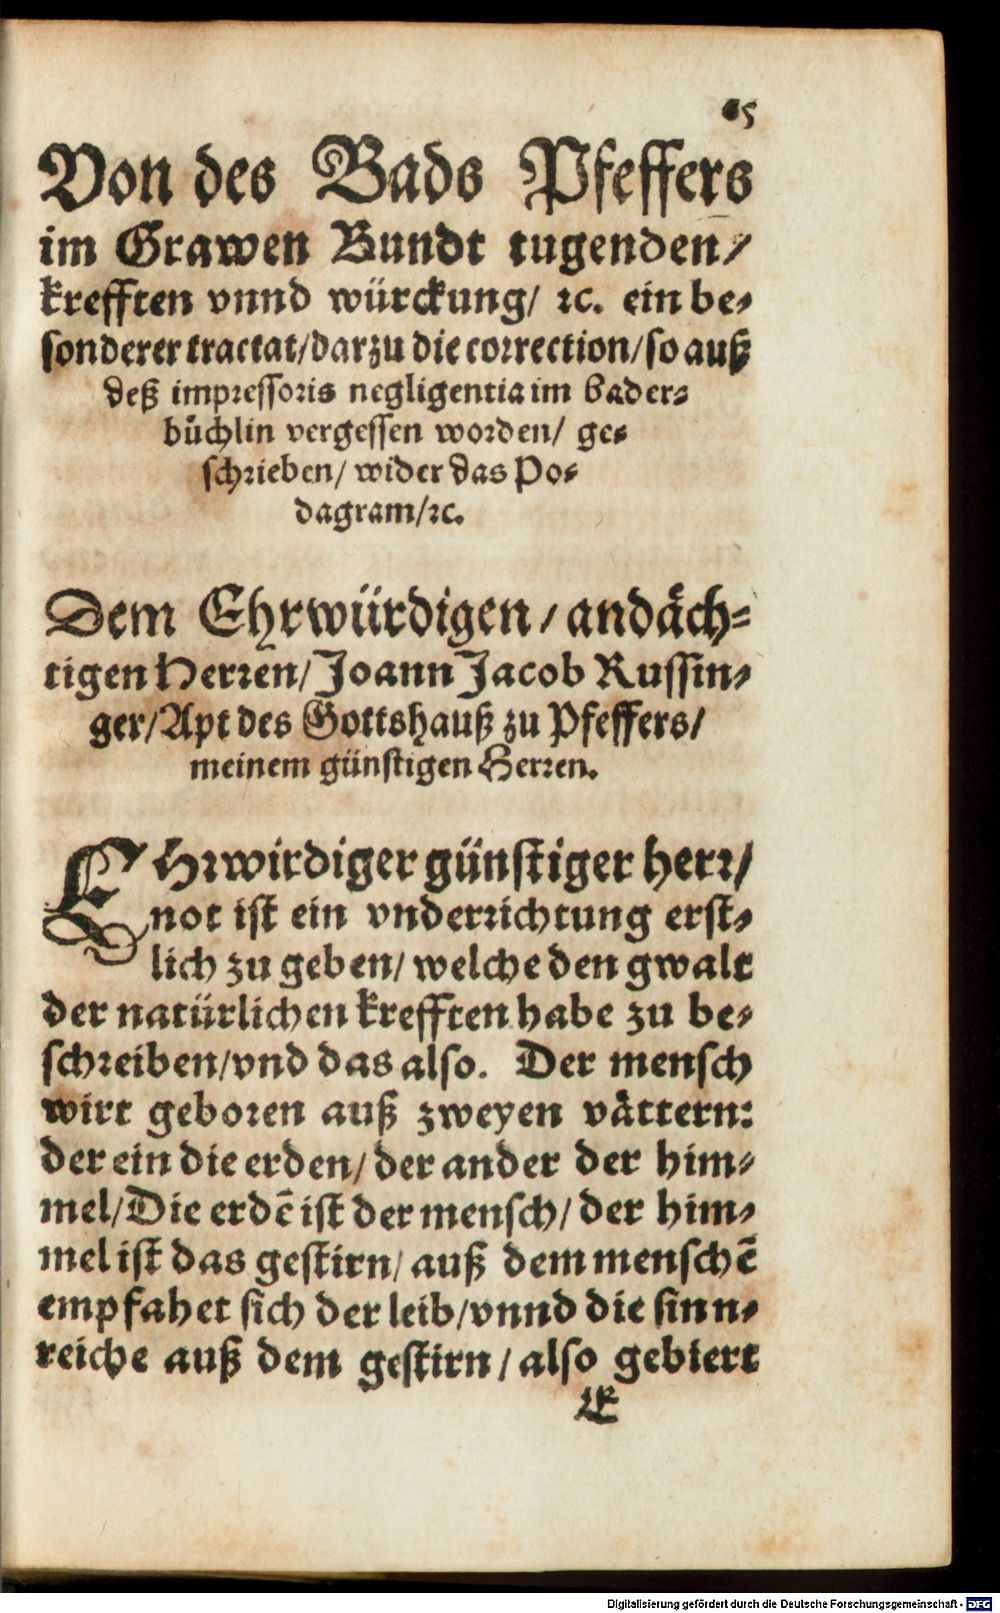 65
Von des Bads Pfeffers
im Grawen Bundt tugenden/
krefften vnnd würckung/ ꝛc. ein be⸗
sonderer tractat/darzu die correction/so auß
deß impressoris negligentia im bader⸗
büchlin vergessen worden/ ge⸗
schrieben/ wider das Po⸗
dagram/ꝛc.
Dem Ehrwürdigen/ andäch⸗
tigen Herren/ Joann Jacob Russin⸗
ger/Apt des Gottshauß zu Pfeffers/
meinem günstigen Herren.
EHrwirdiger günstiger herr/
not ist ein vnderrichtung erst⸗
lich zu geben/ welche den gwalt
der natürlichen krefften habe zu be⸗
schreiben/vnd das also. Der mensch
wirt geboren auß zweyen vättern:
der ein die erden/ der ander der him⸗
mel/Die erdē ist der mensch/ der him⸗
mel ist das gestirn/ auß dem menschē
empfahet sich der leib/vnnd die sinn⸗
reiche auß dem gestirn/ also gebiert
E
Digitalisierung gefördert durch die Deutsche Forschungsgemeinschaft - DFG